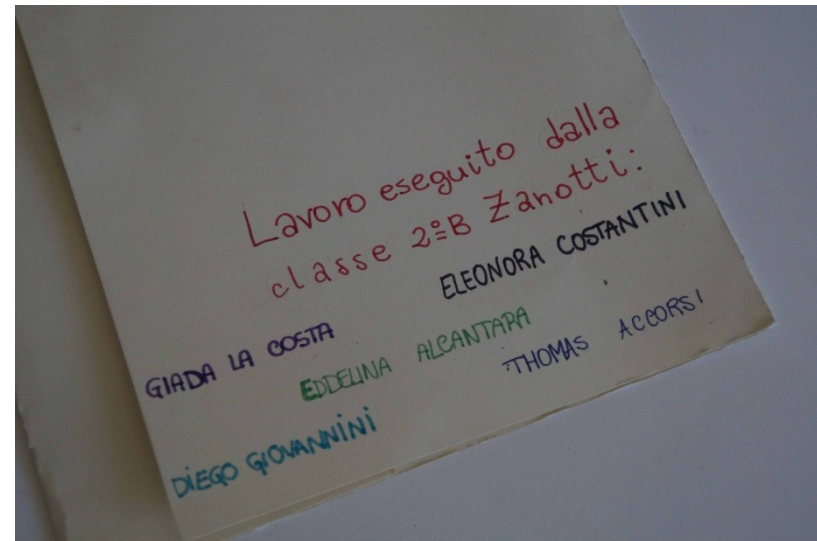 Lavoro eseguito dalla
classe 2ºB Zanotti:
ELEONORA COSTANTINI
GIADA LA COSTA
EDDELINA ALCANTARA
THOMAS ACCORSI
DIEGO GIOVANNINI